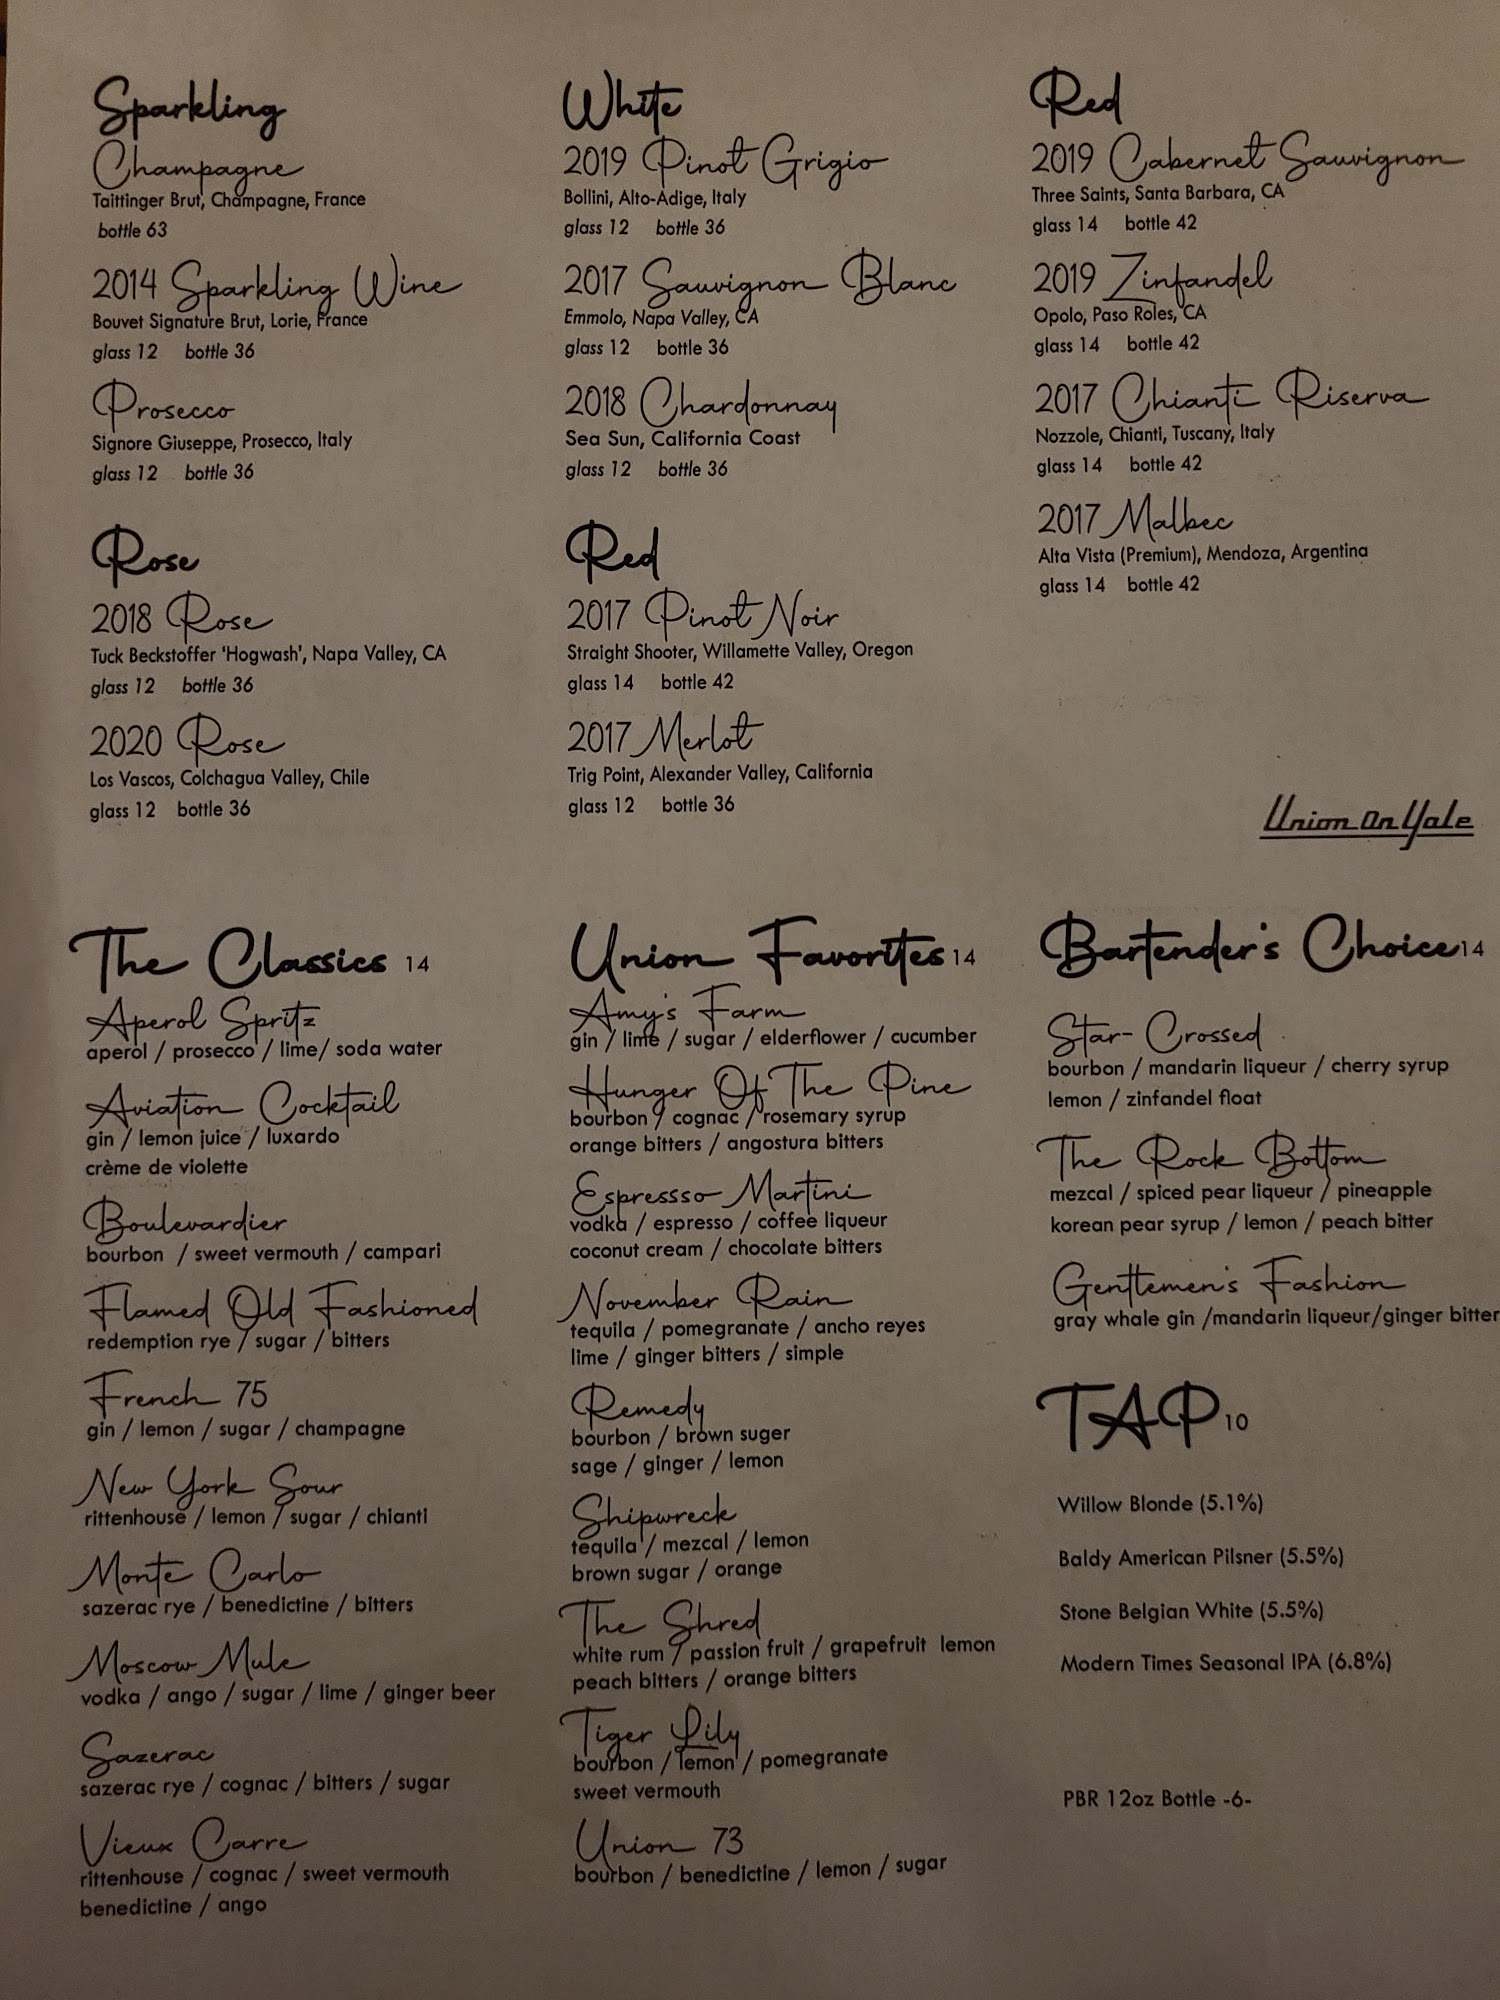 Sparkling
Champagne
Taittinger Brut, Champagne, France
bottle 63
2014 Sparkling Wine
Bouvet Signature Brut, Lorie, France
glass 12 bottle 36
Prosecco
Signore Giuseppe, Prosecco, Italy
glass 12 bottle 36
Rose
2018 Rose
Tuck Beckstoffer 'Hogwash', Napa Valley, CA
glass 12 bottle 36
2020 Rose
Los Vascos, Colchagua Valley, Chile
glass 12 bottle 36
White
2019 Pinot Grigio
Bollini, Alto-Adige, Italy
glass 12 bottle 36
2017 Sauvignon Blanc
Emmolo, Napa Valley, CA
glass 12 bottle 36
2018 Chardonnay
Sea Sun, California Coast
glass 12 bottle 36
Red
2017 Pinot Noir
Straight Shooter, Willamette Valley, Oregon
glass 14 bottle 42
2017 Merlot
Trig Point, Alexander Valley, California
glass 12 bottle 36
Red
2019 Cabernet Sauvignon
Three Saints, Santa Barbara, CA
glass 14 bottle 42
2019 Zinfandel
Opolo, Paso Roles, CA
glass 14 bottle 42
2017 Chianti Riserva
Nozzole, Chianti, Tuscany, Italy
glass 14 bottle 42
2017 Malbec
Alta Vista (Premium), Mendoza, Argentina
glass 14 bottle 42
Union On Yale
The Classics 14
Aperol Spritz
aperol / prosecco / lime/ soda water
Aviation Cocktail
gin / lemon juice / luxardo
crème de violette
Boulevardier
bourbon / sweet vermouth / campari
Flamed Old Fashioned
redemption rye / sugar / bitters
French 75
gin / lemon / sugar / champagne
New York Sour
rittenhouse / lemon / sugar / chianti
Monte Carlo
sazerac rye / benedictine / bitters
Moscow Mule
vodka / ango / sugar / lime / ginger beer
Sazerac
sazerac rye / cognac / bitters / sugar
Vieux Carre
rittenhouse / cognac / sweet vermouth
benedictine / ango
Union Favorites 14
Amy's Farm
gin / lime / sugar / elderflower / cucumber
Hunger Of The Pine
bourbon / cognac / rosemary syrup
orange bitters / angostura bitters
Espressso Martini
vodka / espresso / coffee liqueur
coconut cream / chocolate bitters
November Rain
tequila / pomegranate / ancho reyes
lime / ginger bitters / simple
Remedy
bourbon / brown suger
sage / ginger / lemon
Shipwreck
tequila / mezcal / lemon
brown sugar / orange
The Shred
white rum / passion fruit / grapefruit lemon
peach bitters / orange bitters
Tiger Lily
bourbon / lemon / pomegranate
sweet vermouth
Union 73
bourbon / benedictine / lemon / sugar
Bartender's Choice 14
Star- Crossed
bourbon / mandarin liqueur / cherry syrup
lemon / zinfandel float
The Rock Bottom
mezcal / spiced pear liqueur / pineapple
korean pear syrup / lemon / peach bitter
Genttemen's Fashion
gray whale gin /mandarin liqueur/ginger bitter
TAP 10
Willow Blonde (5.1%)
Baldy American Pilsner (5.5%)
Stone Belgian White (5.5%)
Modern Times Seasonal IPA (6.8%)
PBR 12oz Bottle -6-